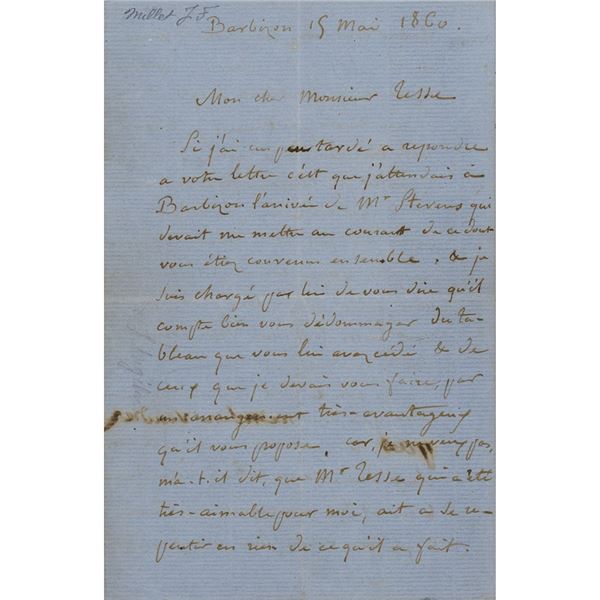 Millet J. F.
Barbizon 15 Mai 1860.
Mon cher Monsieur Tesse
Si j'ai un peu tardé a repondre
a votre lettre c'est que j'attendais à
Barbizon l'arrivée de Mr Stevens qui
devait me mettre au courant de ce dont
vous étiez convenus ensemble. & je
suis chargé par lui de vous dire qu'il
compte bien vous dédommager du ta-
bleau que vous lui avez cédé & de
ceux que je devais vous faire, par
un arrangement très-avantageux
qu'il vous propose car, je ne veux pas,
m'a-t-il dit, que Mr Tesse qui a été
très-aimable pour moi, ait à se re-
pentir en rien de ce qu'il a fait.